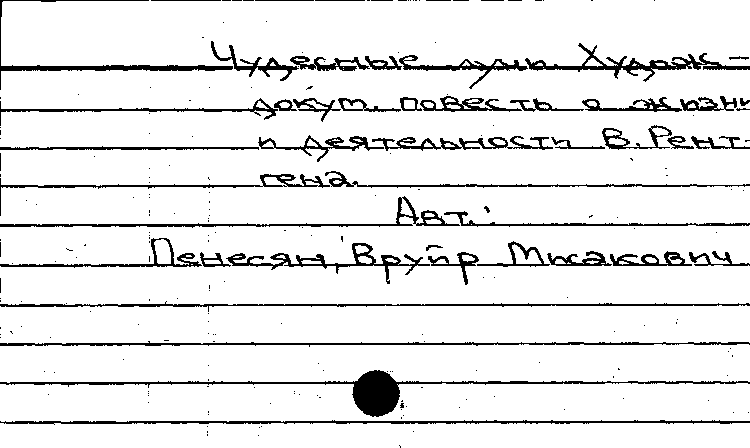 Чудесные лучи. Худож-
докум. повесть о жизни
и деятельности В. Рент-
гена.
Авт.:
Пенесян, Вруйр Мисакович